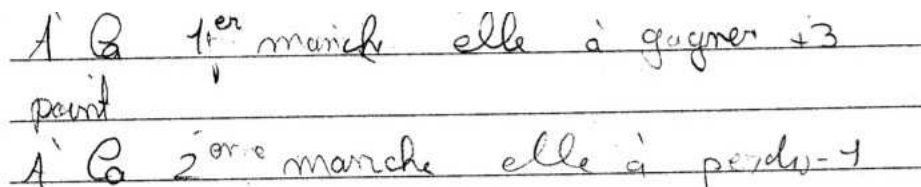 A' la 1er manche elle à gagner +3
point
A' la 2eme manche elle à perdu -1